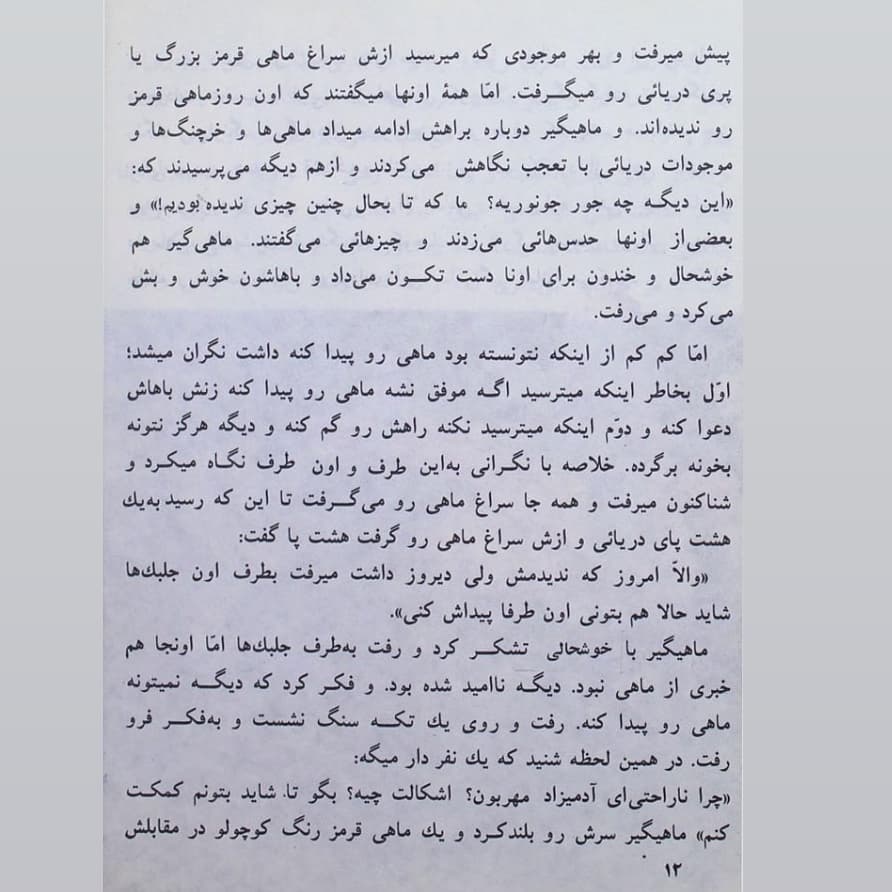 پیش میرفت و بهر موجودی که میرسید ازش سراغ ماهی قرمز بزرگ یا
پری دریائی رو میگرفت. امّا همهٔ اونها میگفتند که اون روزماهی قرمز
رو ندیده‌اند. و ماهیگیر دوباره براهش ادامه میداد ماهی‌ها و خرچنگ‌ها و
موجودات دریائی با تعجب نگاهش می‌کردند و ازهم دیگه می‌پرسیدند که:
«این دیگه چه جور جونوریه؟ ما که تا بحال چنین چیزی ندیده بودیم!» و
بعضی‌از اونها حدس‌هائی می‌زدند و چیزهائی می‌گفتند. ماهی‌گیر هم
خوشحال و خندون برای اونا دست تکون می‌داد و باهاشون خوش و بش
می‌کرد و می‌رفت.
امّا کم کم از اینکه نتونسته بود ماهی رو پیدا کنه داشت نگران میشد؛
اوّل بخاطر اینکه میترسید اگه موفق نشه ماهی رو پیدا کنه زنش باهاش
دعوا کنه و دوّم اینکه میترسید نکنه راهش رو گم کنه و دیگه هرگز نتونه
بخونه برگرده. خلاصه با نگرانی به‌این طرف و اون طرف نگاه میکرد و
شناکنون میرفت و همه جا سراغ ماهی رو می‌گرفت تا این که رسید به‌یك
هشت پای دریائی و ازش سراغ ماهی رو گرفت هشت پا گفت:
«والاّ امروز که ندیدمش ولی دیروز داشت میرفت بطرف اون جلبك‌ها
شاید حالا هم بتونی اون طرفا پیداش کنی».
ماهیگیر با خوشحالی تشکر کرد و رفت به‌طرف جلبك‌ها امّا اونجا هم
خبری از ماهی نبود. دیگه ناامید شده بود. و فکر کرد که دیگه نمیتونه
ماهی رو پیدا کنه. رفت و روی یك تکه سنگ نشست و به‌فکر فرو
رفت. در همین لحظه شنید که یك نفر دار میگه:
«چرا ناراحتی‌ای آدمیزاد مهربون؟ اشکالت چیه؟ بگو تا شاید بتونم کمکت
کنم» ماهیگیر سرش رو بلندکرد و یك ماهی قرمز رنگ کوچولو در مقابلش
۱۲